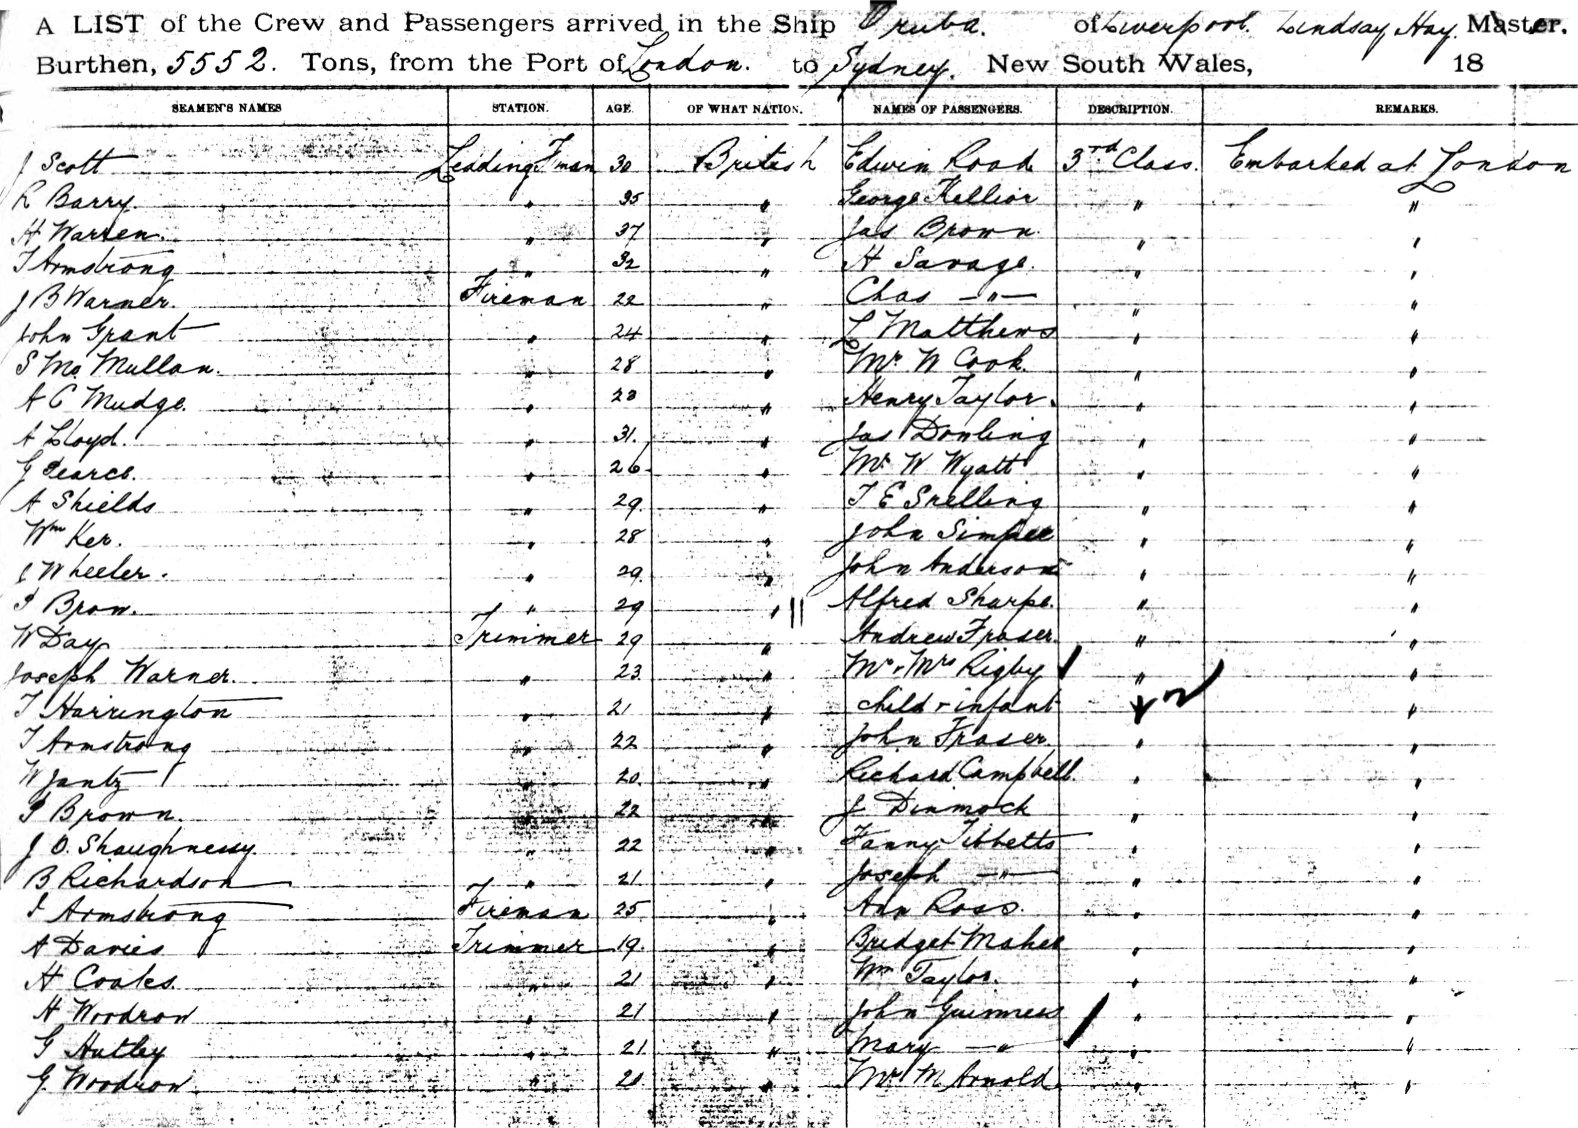 A LIST of the Crew and Passengers arrived in the Ship Oruba. of Liverpool. Lindsay Hay Master.
Burthen, 5552. Tons, from the Port of London. to Sydney. New South Wales, 18
SEAMEN'S NAMES STATION. AGE. OF WHAT NATION. NAMES OF PASSENGERS. DESCRIPTION. REMARKS.
J Scott Leading F'man 30 British Edwin Road 3rd Class. Embarked at London
R Barry. " 35 " George Kellior " "
H Warren. " 37 " Jas Brown. " "
T Armstrong " 32 " H Savage. " "
J B Warner. Fireman 22 " Chas —"— " "
John Grant " 24 " L Matthews " "
S McMullan. " 28 " Mr W Cook. " "
A C Mudge. " 23 " Henry Taylor. " "
A Lloyd. " 31. " Jas Dowling " "
G Pearce. " 26. " Mr W Wyatt " "
A Shields " 29. " T E Snelling " "
Wm Ker. " 28 " John " "
J Wheeler. " 29. " John Anderson " "
Brow. " 29 " Alfred Sharpe. " "
W Day Trimmer 29 " Andrew Fraser. " "
Joseph Warner. " 23. " Mr & Mrs Rigby " "
T Harrington " 21 " child & infant " "
T Armstrong " 22 " John Fraser. " "
W Jantz " 20. " Richard Campbell " "
Brown. " 22 " J Dinmock " "
J O. Shaughnessy. " 22 " Fanny Tibbetts " "
B Richardson " 21 " Joseph —"— " "
Armstrong Fireman 25 " Ann Ross. " "
A Davies Trimmer 19. " Bridget Maher " "
H Coates. " 21 " Wm Taylor. " "
H Woodrow " 21 " John Guinness " "
G Hutley " 21 " Mary —"— " "
G. Woodrow. " 20 " M Arnold. " "